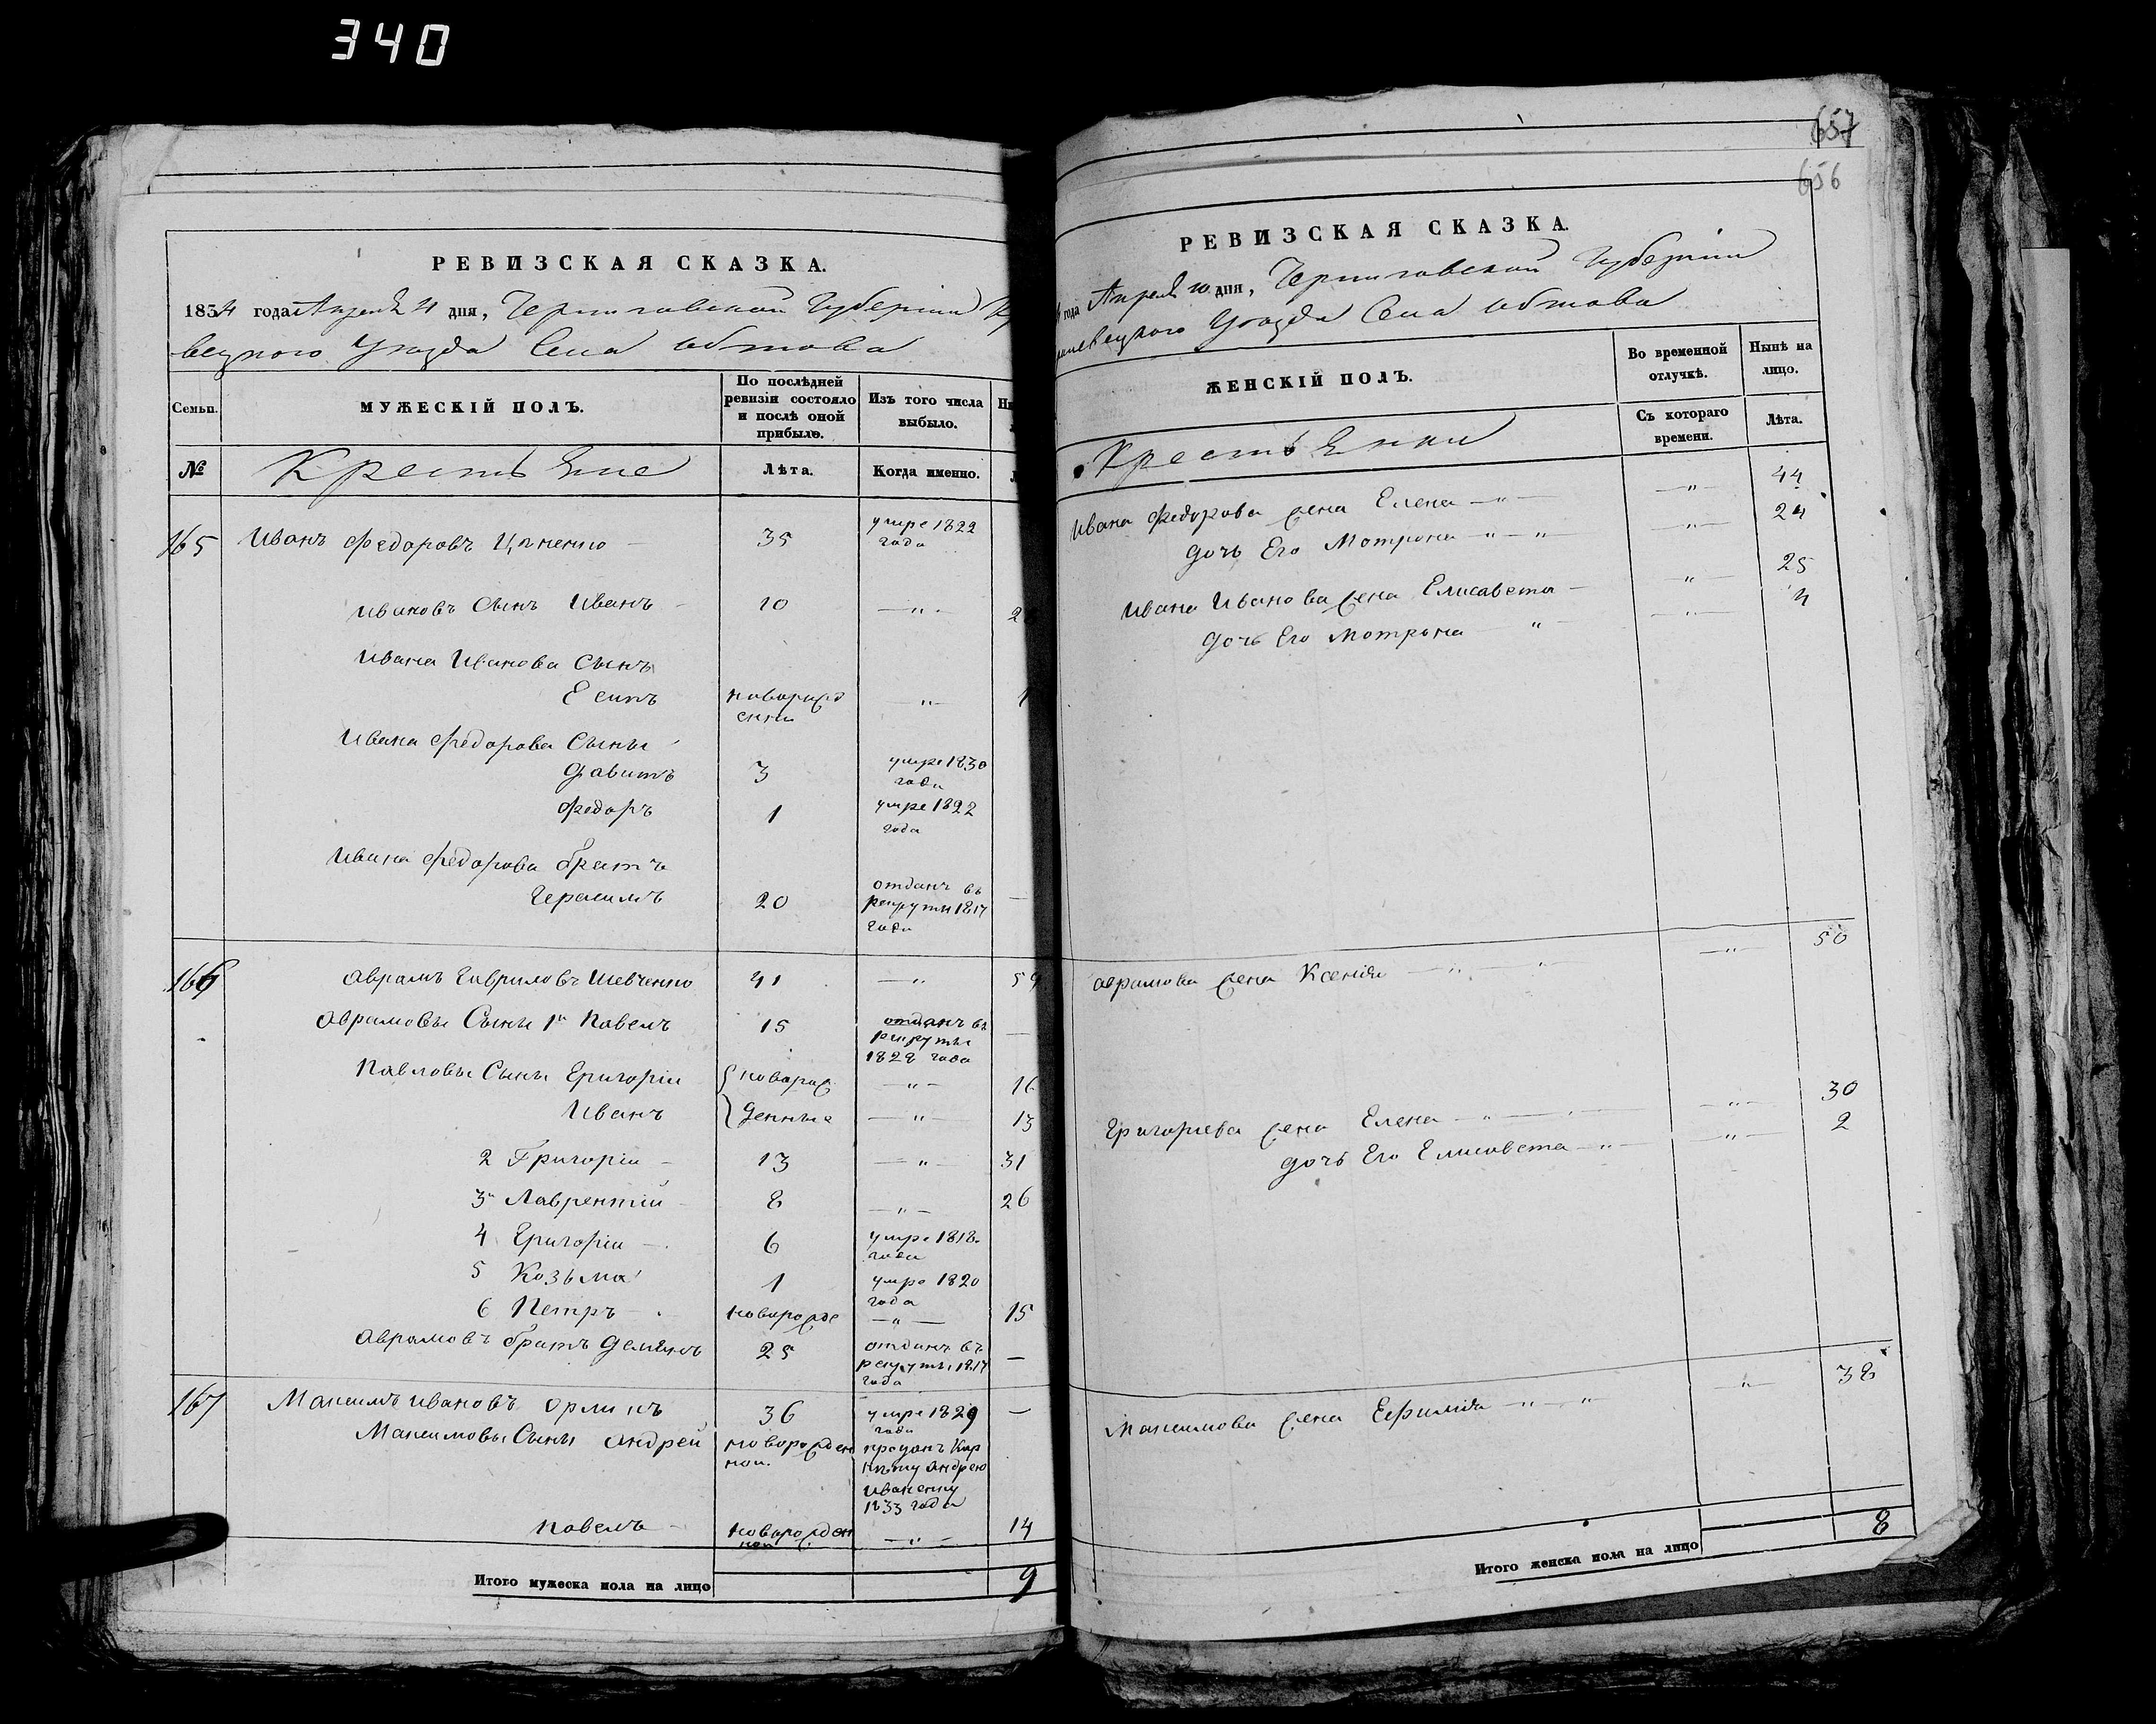 340
РЕВИЗСКАЯ СКАЗКА.
1834 года Апреля 4 дня, Черниговской Губернии
вецкого Уезда Села Обтова
Семьи.
МУЖЕСКІЙ ПОЛЪ.
По послѣдней
ревизіи состояло
и послѣ оной
прибыло.
Изъ того числа
выбыло.
№
Крестьяне
Лѣта.
Когда именно.
165 Иванъ Федоровъ 35 умре 1822
года
Ивановъ Сынъ Иванъ 10 — " —
Ивана Иванова Сынъ
Есипъ новорожд — " —
енни
Ивана Федорова Сыны
Давитъ 3 умре 1830
года
Федоръ 1 умре 1822
года
Ивана Федорова братъ
Герасимъ 20 отданъ въ
рекруты 1817 —
года
166 Аврамъ Гавриловъ Шевченко 41 — " 59
Аврамовы Сыны 1й Павелъ 15 отданъ въ —
рекруты
1828 года
Павловы Сыны Григоріи новорож — " — 16
Иванъ денные — " — 13
2 Григоріи — 13 — " — 31
3й Лаврентій 8 — " — 26
4 Григоріи — 6 умре 1818
года
5 Козьма 1 умре 1820
года
6 Петръ — новорожде — " — 15
Аврамовъ братъ Демянъ 25 отданъ въ
рекруты 1817 —
года
167 Максимъ Ивановъ Орликъ 36 умре 1829 —
года
Максимовы Сыны Андрей новорожден проданъ
ной. Андрею
Иваненку
1833 года
Павелъ — новорожден — " — 14
ной
Итого мужеска пола на лицо 9
657
656
РЕВИЗСКАЯ СКАЗКА.
года Апреля 10 дня, Черниговской Губерніи
вецкого Уезда Села Обтова
ЖЕНСКІЙ ПОЛЪ.
Во временной
отлучкѣ.
Нынѣ на
лицо.
Съ котораго
времени.
Лѣта.
Крестьянки
Ивана Федорова жена Елена — " — — " — 44
дочь Его Мотрона — " — " — — " — 24
Ивана Иванова жена Елисавета — — " — 25
дочь Его Мотрона — " — — " — 4
Аврамова жена Ксенія — " — " — — " — 50
Григорiева жена Елена — " — — " — 30
дочь Его Елисовета — " — — " — 2
Максимова жена Ефимія — " — " — " — 38
Итого женска пола на лицо 8